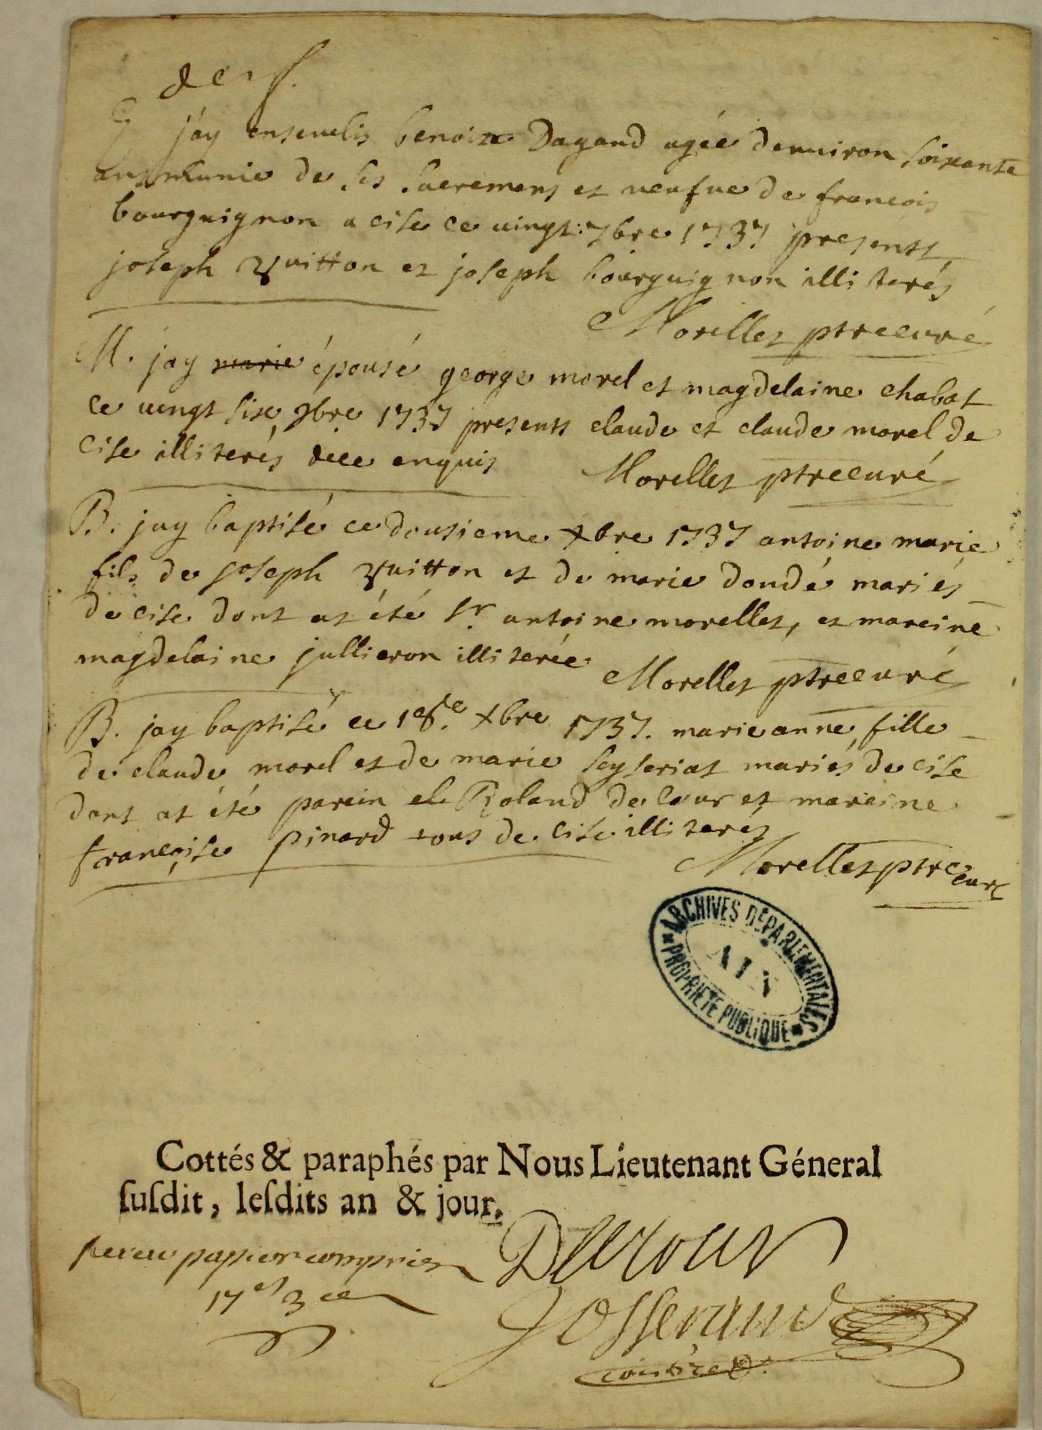 der f.
S. j'ay ensevelis benoite Dagand agée denuiron soixante
ans munie de ses sacremens et veufue de francois
bourguignon a cise ce vingt: 7bre 1737 presents
joseph vuitton et joseph bourguignon illiterés
Morellet ptre curé
M. jay marié épousé george morel et magdelaine chabat
ce vingt six 9bre 1737 presents claude et claude morel de
Cise illiterés de ce enquis Morellet ptre curé
B. jay baptisé ce dousieme Xbre 1737 antoine marie
fils de joseph vuitton et de marie dondé mariés
de cise dont at été sr. antoine morellet, et mareine
magdelaine jullieron illiterée Morellet ptre curé
B. jay baptisé ce 18e. Xbre 1737. marieanne fille
de claude morel et de marie seyseriat mariés de cise
dont at été parein Roland de cour et mareine
françoise pinard tous de cise illiterés
Morellet ptre curé
ARCHIVES DÉPARTEMENTALES
AIN
PROPRIETE PUBLIQUE
Cottés & paraphés par Nous Lieutenant Géneral
susdit, lesdits an & jour.
receu papier compris
17 s 3
Josserand